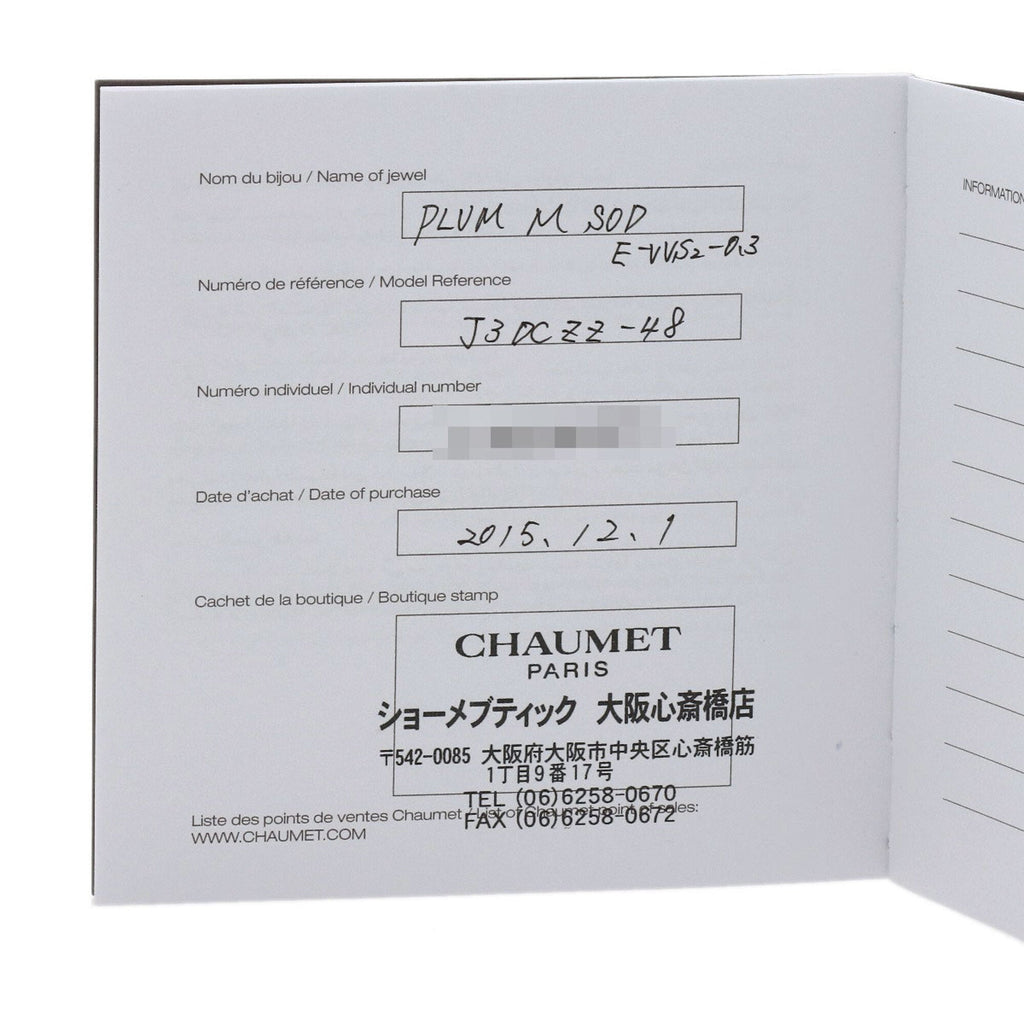 Nom du bijou / Name of jewel
PLUM M SOD
E-VVS2-0.3
Numéro de référence / Model Reference
J3DCZZ-48
Numéro individuel / Individual number
Date d'achat / Date of purchase
2015、12、1
Cachet de la boutique / Boutique stamp
CHAUMET
PARIS
ショーメブティック 大阪心斎橋店
〒542-0085 大阪府大阪市中央区心斎橋筋
1丁目9番17号
TEL (06)6258-0670
FAX (06)6258-0672
Liste des points de ventes Chaumet / List of Chaumet point of sales:
WWW.CHAUMET.COM
INFORMATION